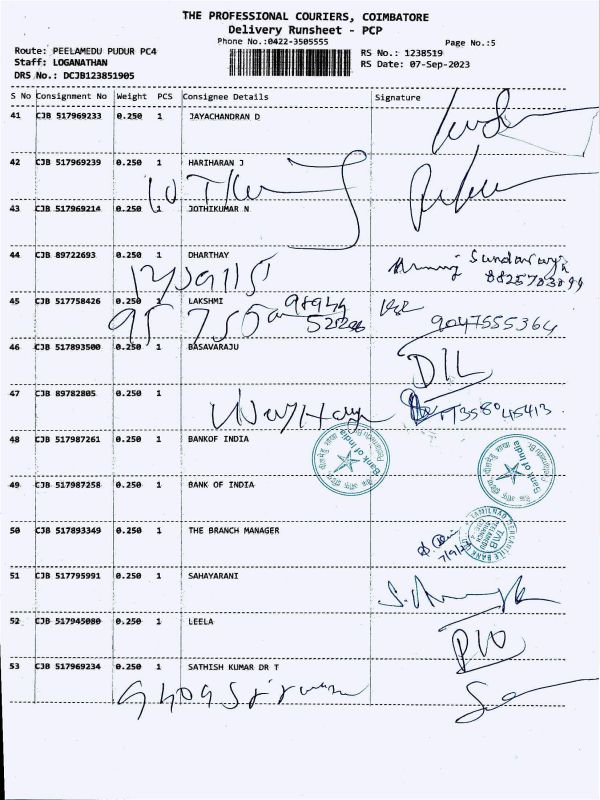 THE PROFESSIONAL COURIERS, COIMBATORE
Delivery Runsheet - PCP
Phone No.:0422-3505555
Page No.:5
Route: PEELAMEDU PUDUR PC4
RS No.: 1238519
Staff: LOGANATHAN
RS Date: 07-Sep-2023
DRS No.: DCJB123851905
S No Consignment No Weight PCS Consignee Details Signature
41 CJB 517969233 0.250 1 JAYACHANDRAN D
42 CJB 517969239 0.250 1 HARIHARAN J
43 CJB 517969214 0.250 1 JOTHIKUMAR N
44 CJB 89722693 0.250 1 DHARTHAY
Sundararaja
45 CJB 517758426 0.250 1 LAKSHMI
9047555364
46 CJB 517893500 0.250 1 BASAVARAJU
DIL
47 CJB 89782805 0.250 1
48 CJB 517987261 0.250 1 BANKOF INDIA
Bank of India
Bank of India
49 CJB 517987258 0.250 1 BANK OF INDIA
50 CJB 517893349 0.250 1 THE BRANCH MANAGER
TAMILNAD MERCANTILE BANK
TMB
51 CJB 517795991 0.250 1 SAHAYARANI
52 CJB 517945080 0.250 1 LEELA
53 CJB 517969234 0.250 1 SATHISH KUMAR DR T